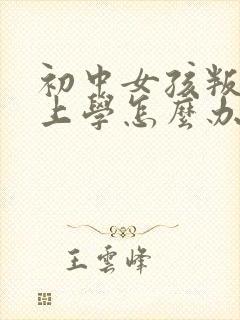 初中女孩叛
上學怎麼办
王雲峰